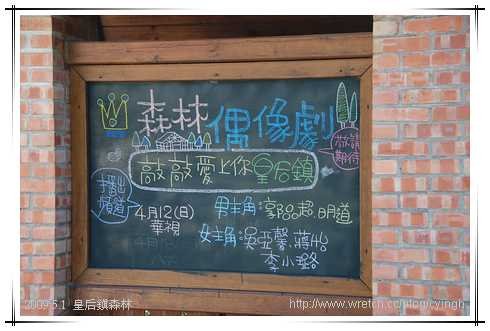 森林
偶像劇
敬請
期待
敲敲愛上你皇后鎮
播出
頻道
4月12(日)
華視
男主角:郭品超.明道
女主角:吳亞馨.蔣怡
李小璐
2009.5.1 皇后鎮森林
http://www.wretch.cc/blog/cyingh